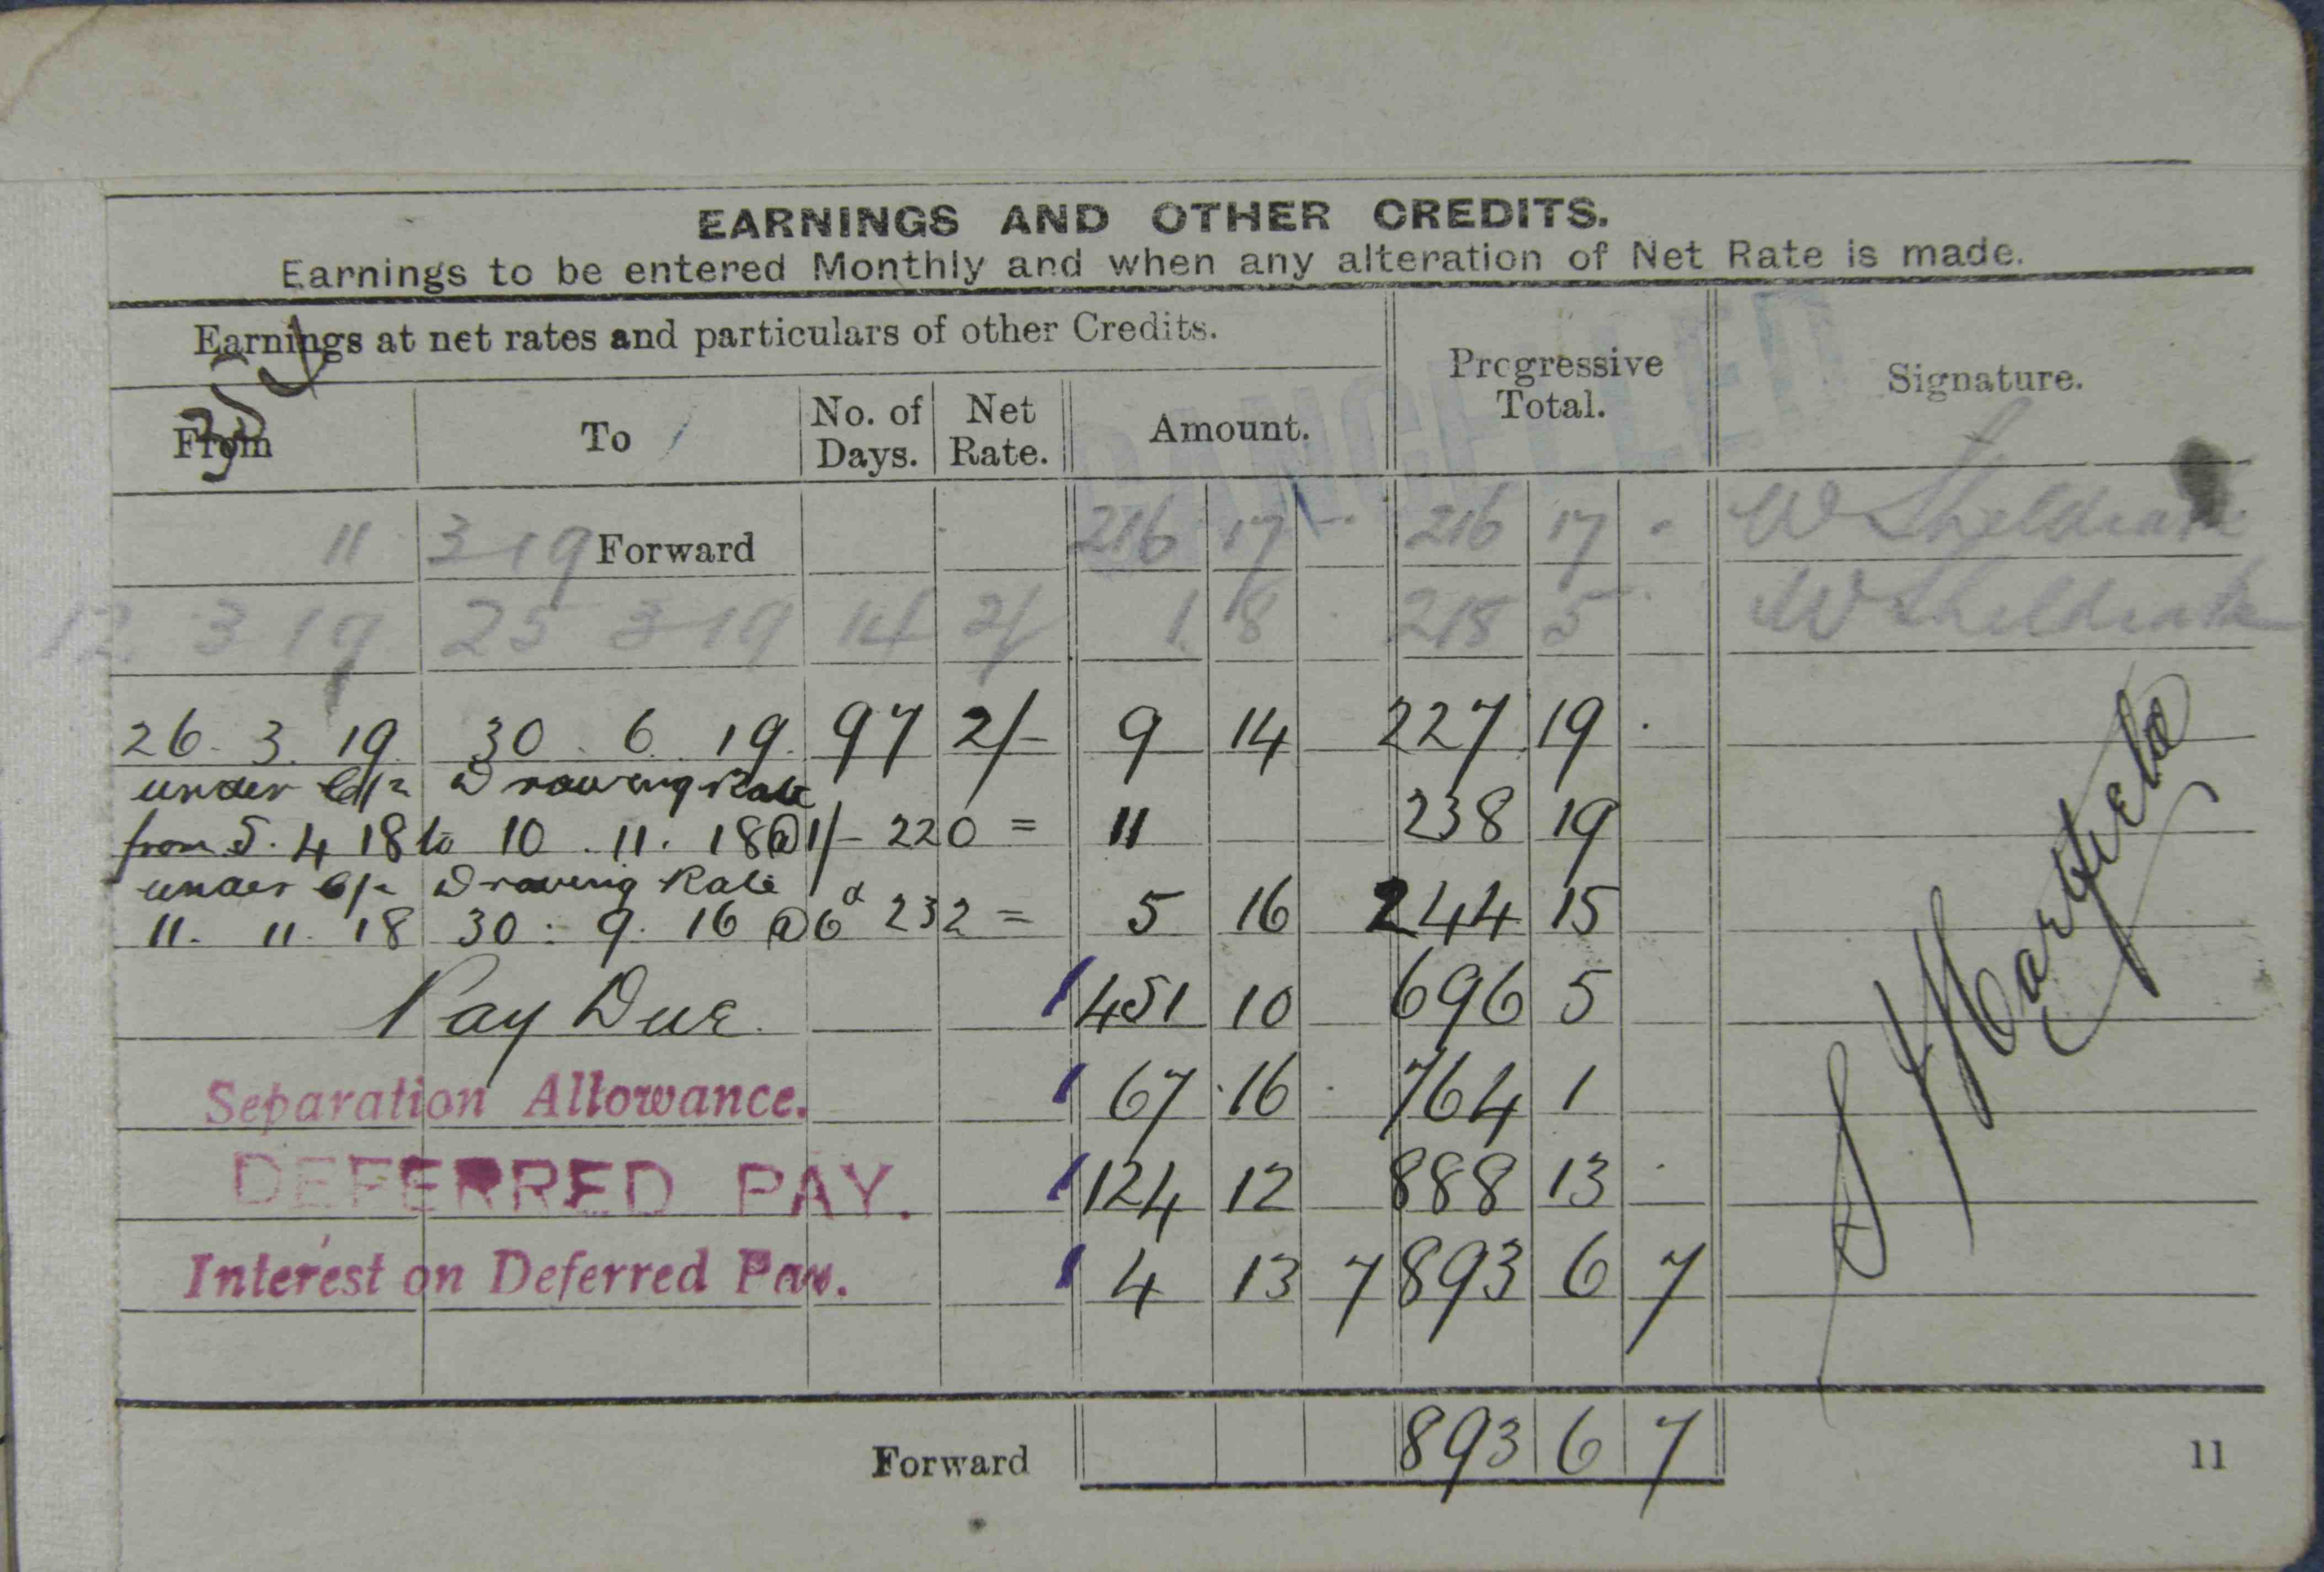 EARNINGS AND OTHER CREDITS.
Earnings to be entered Monthly and when any alteration of Net Rate is made.
Earnings at net rates and particulars of other Credits.
Progressive Total.
Signature.
From To No. of Days. Net Rate. Amount.
CANCELLED
11 3 19 Forward 216 17 - 216 17 - W Sheldrake
12 3 19 25 3 19 14 2/ 1 8 218 5 W Sheldrake
26. 3. 19 30. 6. 19. 97 2/- 9 14 227 19 .
under Drawing Rate
from 5. 4 18 to 10. 11. 18 @ 1/- 220 = 11 238 19
under Drawing Rate
11. 11. 18 30. 9. 16 @ 6d 232 = 5 16 244 15
Pay Due. 451 10 696 5
Separation Allowance. 67 16 764 1
DEFERRED PAY. 124 12 888 13
Interest on Deferred Pay. 4 13 7 893 6 7
Forward 893 6 7
11